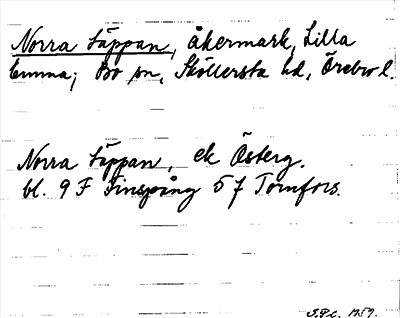 Norra Täppan, åkermark, Lilla
Emma; Bo sn, Sköllersta hd, Örebro l.
Norra Täppan, ek Österg.
bl. 9 F Finspång 5 f Tomfors.
1959.